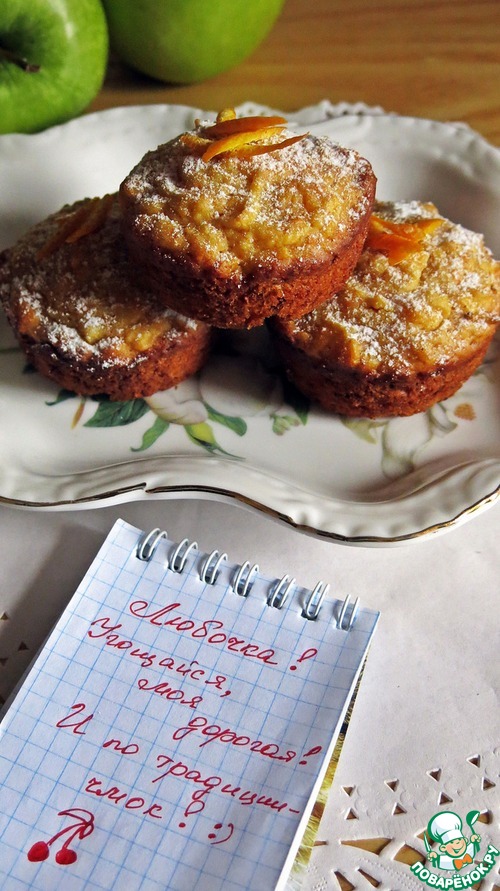 Любочка!
Угощайся,
моя
дорогая!
И по традиции-
чмок! :)
ПОВАРЁНОК.РУ